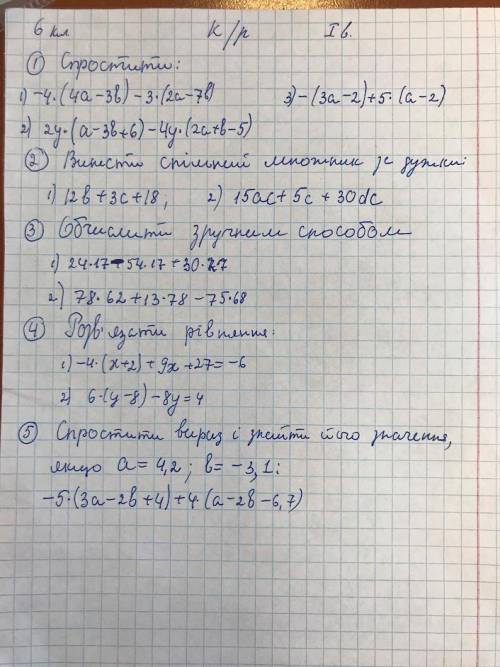 6 кл К/р I в.
① Спростити:
1) -4·(4a-3b)-3·(2a-7b) 3) -(3a-2)+5·(a-2)
2) 2y·(a-3b+6)-4y·(2a+b-5)
② Винести спільний множник за дужки:
1) 12b+3c+18, 2) 15ac+5c+30dc
③ Обчислити зручним способом
1) 24·17-54·17+30·27
2) 78·62+13·78-75·68
④ Розв'язати рівняння:
1) -4·(x+2)+9x+27=-6
2) 6·(y-8)-8y=4
⑤ Спростити вираз і знайти його значення,
якщо a=4,2; b=-3,1:
-5·(3a-2b+4)+4·(a-2b-6,7)